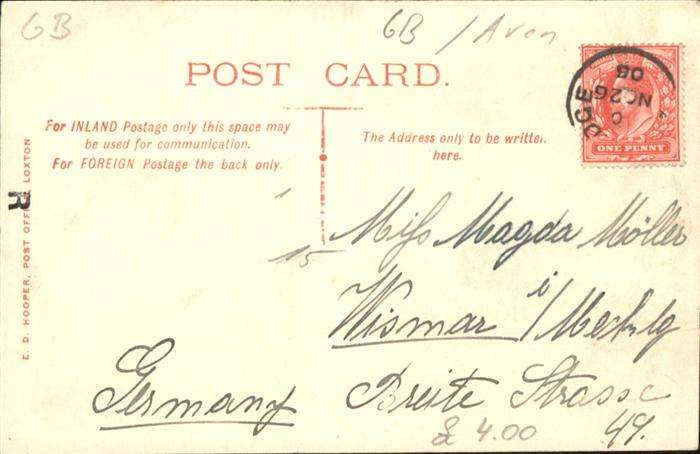 GB
GB / Avon
POST CARD.
For INLAND Postage only this space may
be used for communication.
For FOREIGN Postage the back only.
The Address only to be written
here.
NO 26
06
ONE PENNY
R
E. D. HOOPER, POST OFF LOXTON
15
Miss Magda Möller
Wismar i/Mecklg
Breite Strasse
49.
Germany
£ 4.00